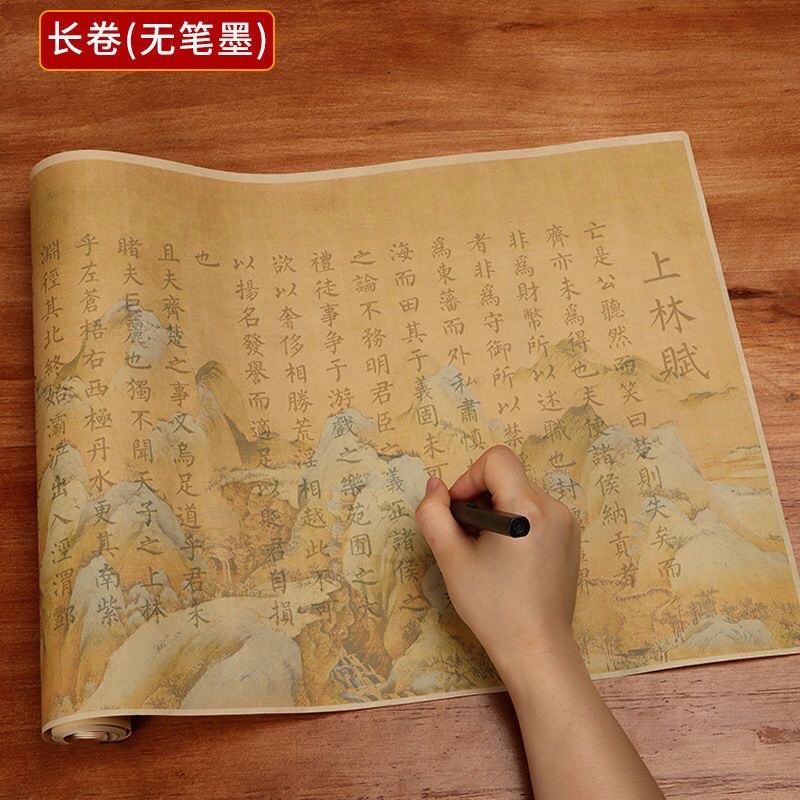 长卷(无笔墨)
上林賦
亡是公聽然而笑曰楚則失矣而
齊亦未爲得也夫使諸侯納貢者
非爲財幣所以述職也封
者非爲守御所以禁
爲東藩而外私肅慎
海而田其于義固未可
之論不務明君臣之義正諸侯之
禮徒事爭于游戲之樂苑囿之大
欲以奢侈相勝荒淫相越此不可
以揚名發譽而適足以貶君自損
也
且夫齊楚之事又烏足道乎君未
睹夫巨麗也獨不聞天子之上林
乎左蒼梧右西極丹水更其南紫
淵徑其北終始灞滻出入涇渭酆